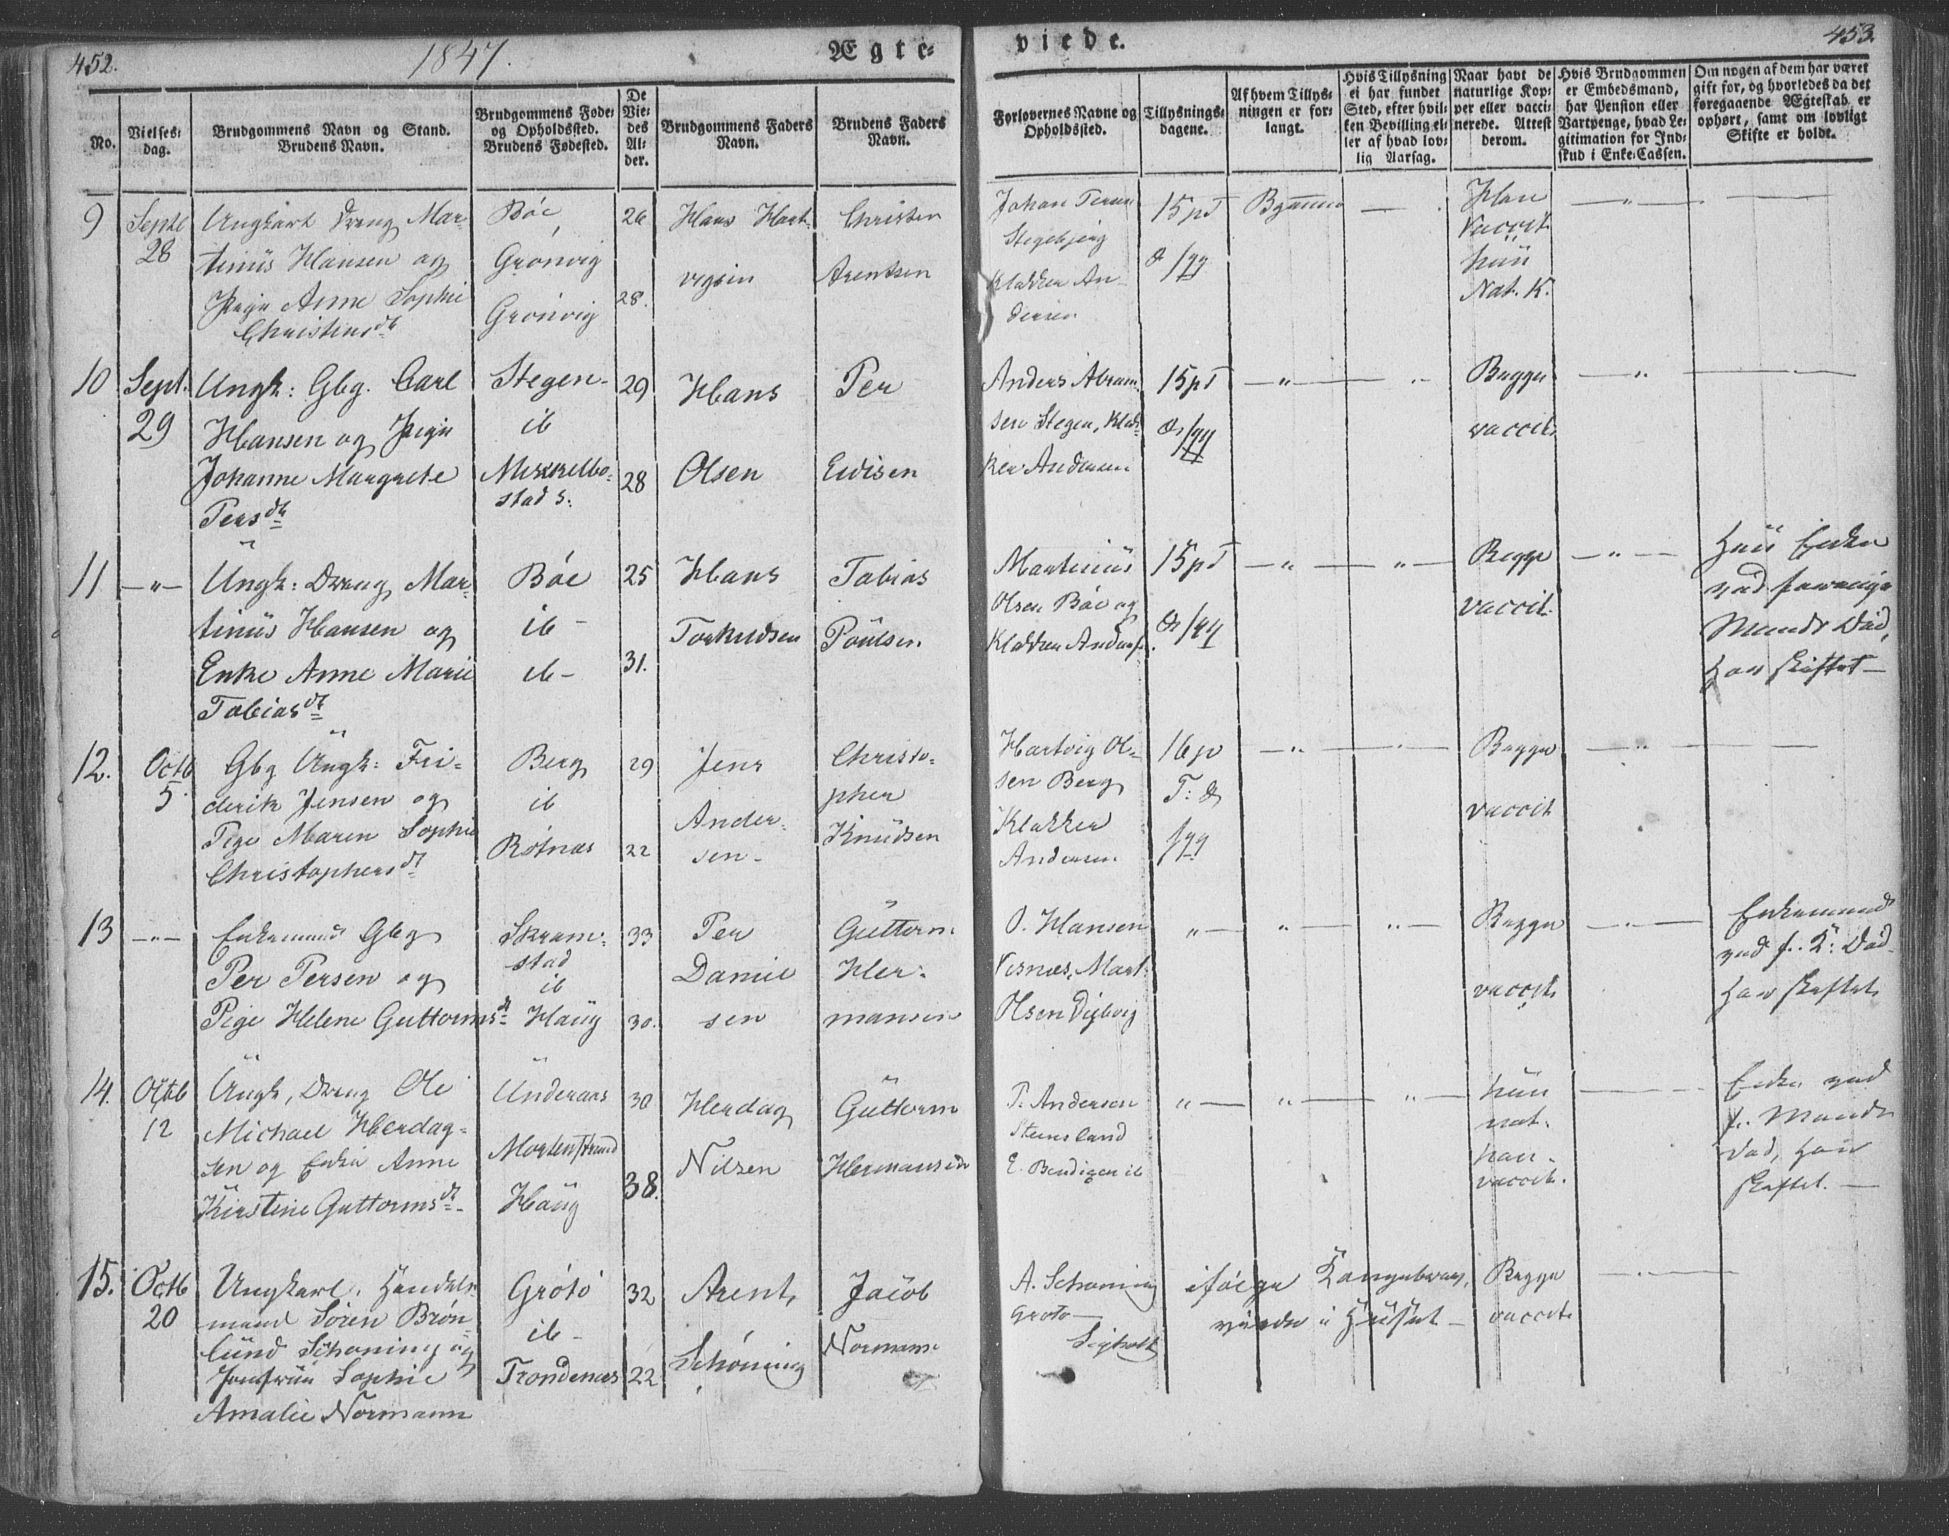 452.
1847.
Ægte-
viede.
453.
No.
Vielses-
dag.
Brudgommens Navn og Stand.
Brudens Navn.
Brudgommens Føde-
og Opholdssted.
Brudens Fødested.
De
Vie-
des
Al-
der.
Brudgommens Faders
Navn.
Brudens Faders
Navn.
Forlovernes Navne og
Opholdssted.
Tillysnings-
dagene.
Af hvem Tillys-
ningen er for-
langt.
Hvis Tillysning
ei har fundet
Sted, efter hvil-
ken Bevilling el-
ler af hvad lov-
lig Aarsag.
Naar havt de
naturlige Kop-
per eller vacci-
nerede. Attest
derom.
Hvis Brudgommen
er Embedsmand,
har Pension eller
Vartpenge, hvad Le-
gitimation for Ind-
skud i Enke-Cassen.
Om nogen af dem har været
gift før, og hvorledes da det
foregaaende Ægteskab er
ophørt, samt om lovligt
Skifte er holdt.
9
Septb
28
Ungkarl Dreng Mar-
tinus Hansen og
Pige Anne Sophie
Christensdt
Bøe
Grønvig
Grønvig
26
28.
Hans Hart-
vigsen
Christen
Arentsen
Johan
Klokker An-
dersen
15 p T
Han
Vaccit.
hun
Nat. K.
10
Sept.
29
Ungk: Gbg. Carl
Hansen og Pige
Johanne Margrete
Persdt
Stegen-
ib
stad S.
29
28
Hans
Olsen
Per
Anders Abram-
sen Stegen, Klok-
ker Andersen
15 p T
Begge
vaccit.
11
—"—
Ungk: Dreng Mar-
tinus Hansen og
Enke Anne Marie
Tobiasdt
Bøe
ib -
ib -
25
31.
Hans
Torkudsen
Tobias
Poulsen
Martinus
Olsen Bøe og
Klokker Anders.
15 p T
Begge
vaccit.
Hun Enke
ved forrige
Mands Død,
har skiftet —
12.
Octb
5.
Gbg Ungk: Fri-
derik Jensen og
Pige Maren Sophie
Christophersdt
Berg
ib
Røtnæs
29
22
Jens
Ander-
sen -
Christo-
pher
Knudsen
Hartvig Ol-
sen Berg
Klokker
Andersen
16 p
T:
Begge
vaccit
13
—"—
Enkemand Gbg
Per Persen og
Pige Helene Guttormsdt
Skram-
stad
ib
Haug
33
30.
Per
Daniel
sen
Guttorm
Her-
mansen
O. Hansen
Vesnæs, Mart.
Olsen
Begge
vaccit.
Enkemand
ved f. K. Død
har skiftet
14.
Octb
12
Ungk, Dreng Ole
Michael Herdag-
sen og Enke Anne
Kirstine Guttormsdt
Underaas
Mortenstrand
Haug
30
38.
Herdag
Nilsen
Guttorm
Hermansen
P. Andersen
Steinsland
E. Bendigen ib
hun
nat.
han -
vaccit.
Enke ved
f. Mands
Død, har
skiftet. —
15.
Octb
20
Ungkarl, Handels-
mand Søren Brøn-
lund Schøning og
Jomfru Sophie
Amalie Normann
Grøtø
ib -
Trondenæs
32
22
Arent
Schøning
Jacob
Normann
A. Schøning
Grøtø —
ifølge Kongebrev,
viede i Huset —
Begge
vaccit